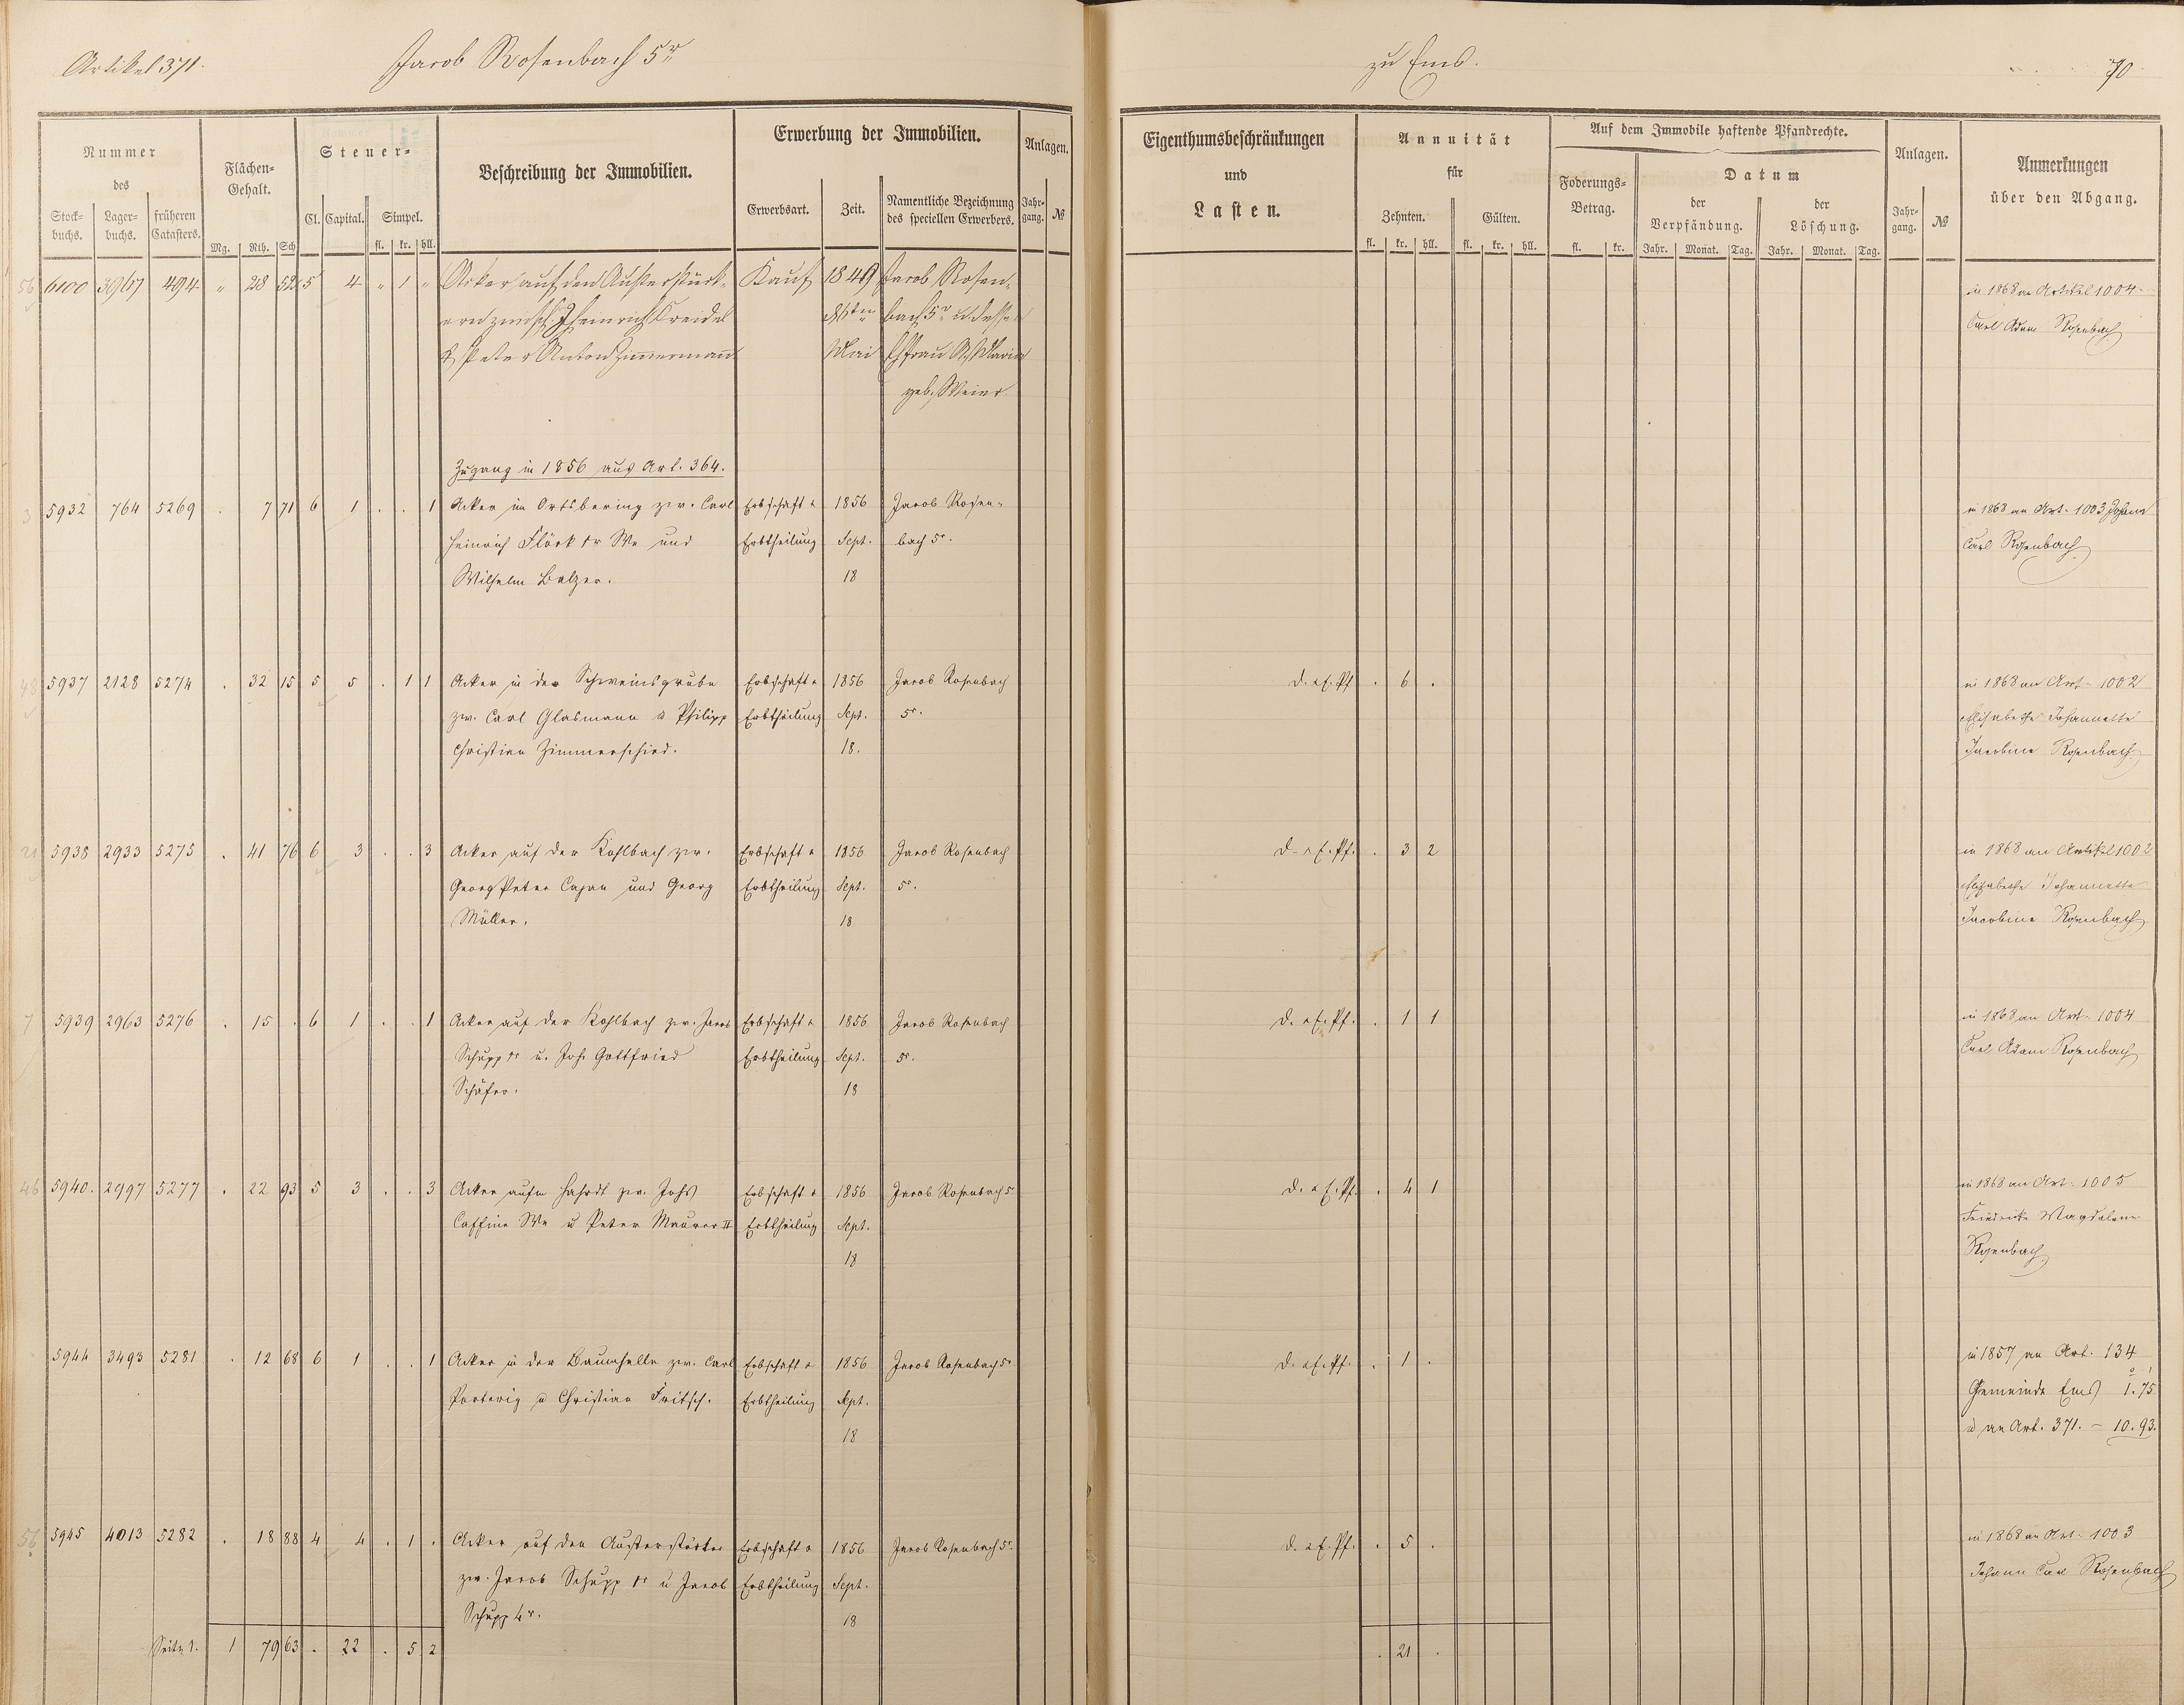 Artikel 371.
Jacob Rosenbach 5r
zu Ems.
70
Nummer
des
Stock-
buchs.
Lager-
buchs.
früheren
Catasters.
Flächen-
Gehalt.
Mg. Rth. Sch
Steuer-
Cl. Capital. Simpel.
fl. kr. hll.
Beschreibung der Immobilien.
Erwerbung der Immobilien.
Erwerbsart. Zeit.
Namentliche Bezeichnung
des speciellen Erwerbers.
Anlagen.
Jahr-
gang. №
Eigenthumsbeschränkungen
und
Lasten.
Annuität
für
Zehnten. Gülten.
fl. kr. hll. fl. kr. hll.
Auf dem Immobile haftende Pfandrechte.
Foderungs-
Betrag.
fl. kr.
Datum
der
Verpfändung.
der
Löschung.
Jahr. Monat. Tag. Jahr. Monat. Tag.
Anlagen.
Jahr-
gang. №
Anmerkungen
über den Abgang.
56 6100 3967 494 " 28 52 5 4 " 1 " Acker auf den Austerstück- Kauf 1849 Jacob Rosen- in 1868 an Artikel 1004
ern zwisch. Heinrich Kreidel bach 5r u. dessen Carl Adam Rosenbach
& Peter Anton Zimmermann Mai Ehfrau A. Maria
geb.
Zugang in 1856 aus Art. 364.
3 5932 764 5269 . 7 71 6 1 . . 1 Acker im Ortsbering zw. Carl Erbschaft & 1856 Jacob Rosen- in 1868 an Art. 1003 Johann
Heinrich Flöck 1r We und Erbtheilung Sept. bach 5r. Carl Rosenbach
Wilhelm Balzer. 18
48 5937 2128 5274 . 32 15 5 5 . 1 1 Acker in der Schweinsgrube Erbschaft & 1856 Jacob Rosenbach d. & E. Pf. . 6 . in 1868 an Art. 1002
zw. Carl Glasmann & Philipp Erbtheilung Sept. 5r. Elisabethe Johannette
Christian Zimmerschied. 18. Jacobine Rosenbach
21 5938 2933 5275 . 41 76 6 3 . . 3 Acker auf der Kohlbach zw. Erbschaft & 1856 Jacob Rosenbach d. & E. Pf. . 3 2 in 1868 an Artikel 1002
Georg Peter Cajan und Georg Erbtheilung Sept. 5r. Elisabethe Johannette
Müller. 18 Jacobine Rosenbach
7 5939 2963 5276 . 15 . 6 1 . . 1 Acker auf der Kohlbach zw. Jacob Erbschaft & 1856 Jacob Rosenbach d. & E. Pf. . 1 1 in 1868 an Art. 1004
Schupp 1r u. Joh. Gottfried Erbtheilung Sept. 5r. Carl Adam Rosenbach
Schäfer. 18
46 5940. 2997 5277 . 22 93 5 3 . . 3 Acker aufm Hahrdt zw. Johs Erbschaft & 1856 Jacob Rosenbach 5r d. & E. Pf. . 4 1 in 1868 an Art. 1005
Caffine We u Peter Maurer II Erbtheilung Sept. Friedrike Magdalene
18 Rosenbach
5944 3493 5281 . 12 68 6 1 . . 1 Acker in der Baumhelle zw. Carl Erbschaft & 1856 Jacob Rosenbach 5r d. & E. Pf. . 1 . in 1857 an Art. 134
u Christian Fritsch. Erbtheilung Sept. Gemeinde Ems 1.75
18 u an Art. 371. – 10.93.
56 5945 4013 5282 . 18 88 4 4 . 1 . Acker auf den Austerstücker Erbschaft & 1856 Jacob Rosenbach 5r. d. & E. Pf. . 5 . in 1868 an Art. 1003
zw. Jacob Schupp 1r u Jacob Erbtheilung Sept. Johann Carl Rosenbach
Schupp 4r. 18
Seite 1. 1 79 63 . 22 . 5 2 . 21 .